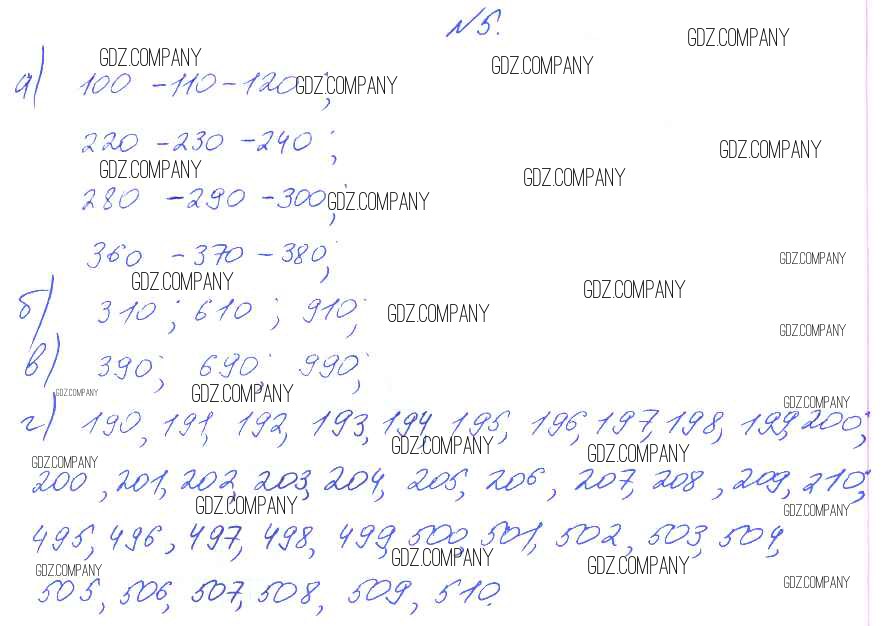 №5.
GDZ.COMPANY
GDZ.COMPANY GDZ.COMPANY
а) 100 - 110 - 120; GDZ.COMPANY
220 - 230 - 240; GDZ.COMPANY
GDZ.COMPANY GDZ.COMPANY
280 - 290 - 300; GDZ.COMPANY
360 - 370 - 380; GDZ.COMPANY
GDZ.COMPANY GDZ.COMPANY
б) 310; 610; 910; GDZ.COMPANY
GDZ.COMPANY
в) 390; 690; 990;
GDZ.COMPANY GDZ.COMPANY GDZ.COMPANY
г) 190, 191, 192, 193, 194, 195, 196, 197, 198, 199, 200;
GDZ.COMPANY GDZ.COMPANY GDZ.COMPANY
200, 201, 202, 203, 204, 205, 206, 207, 208, 209, 210;
GDZ.COMPANY GDZ.COMPANY
495, 496, 497, 498, 499, 500, 501, 502, 503, 504,
GDZ.COMPANY GDZ.COMPANY GDZ.COMPANY GDZ.COMPANY
505, 506, 507, 508, 509, 510.